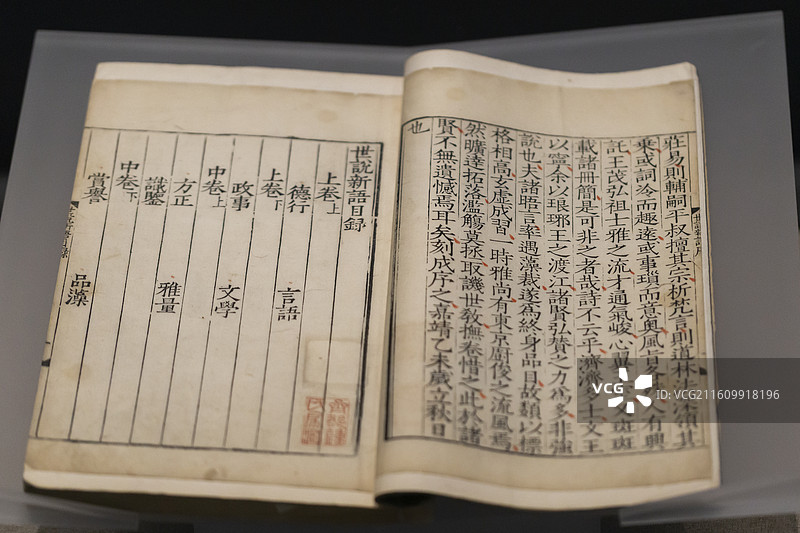 莊易則輔嗣平叔擅其宗析梵言則道林法深領其
乘或詞冷而趣遠或事瑣而意奧風旨各人有興
託王茂弘祖士雅之流才通氣峻心翼斑斑
載諸冊簡是可非之者哉詩不云乎濟濟士文王
以寧余以琅琊王之渡江諸賢弘贊之力為多非強
說也夫諸晤言率遇藻裁遂為終身品目故類以標
格相高玄虛成習一時雅尚有東京廚俊之流風焉
然曠達拓落濫觴莫拯取譏世敎撫卷惜之此於諸
賢不無遺憾焉耳矣刻成序之嘉靖乙未歲立秋日
也
世說新語目録
上卷上
德行 言語
上卷下
政事 文學
中卷上
方正 雅量
識鑒
中卷下
賞譽 品藻
VCG
ID: VCG211609918196